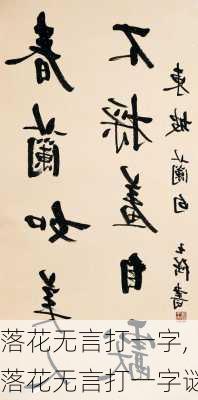 春蘭如美人
不採羞自獻
東坡蘭句 書
落花无言打一字,
落花无言打一字谜